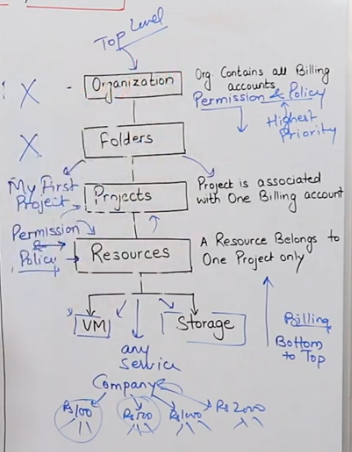 Top Level
Organization
Org Contains all Billing
accounts
Permission & Policy
Highest
Priority
X
X
Folders
My First
Project
Projects
Project is associated
with One Billing account
Permission
&
Policy
Resources
A Resource Belongs to
One Project only
VM
Storage
any
Service
Billing
Bottom
to Top
Company
Rs100
Rs500
Rs1000
Rs2000